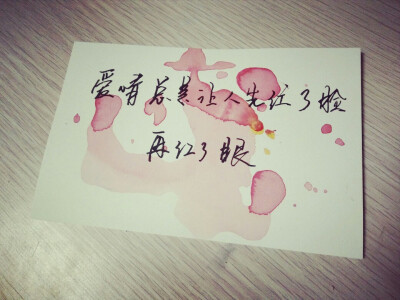 爱情总是让人先红了脸
再红了眼